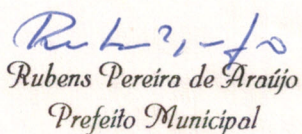 Rubens Pereira de Araújo
Prefeito Municipal